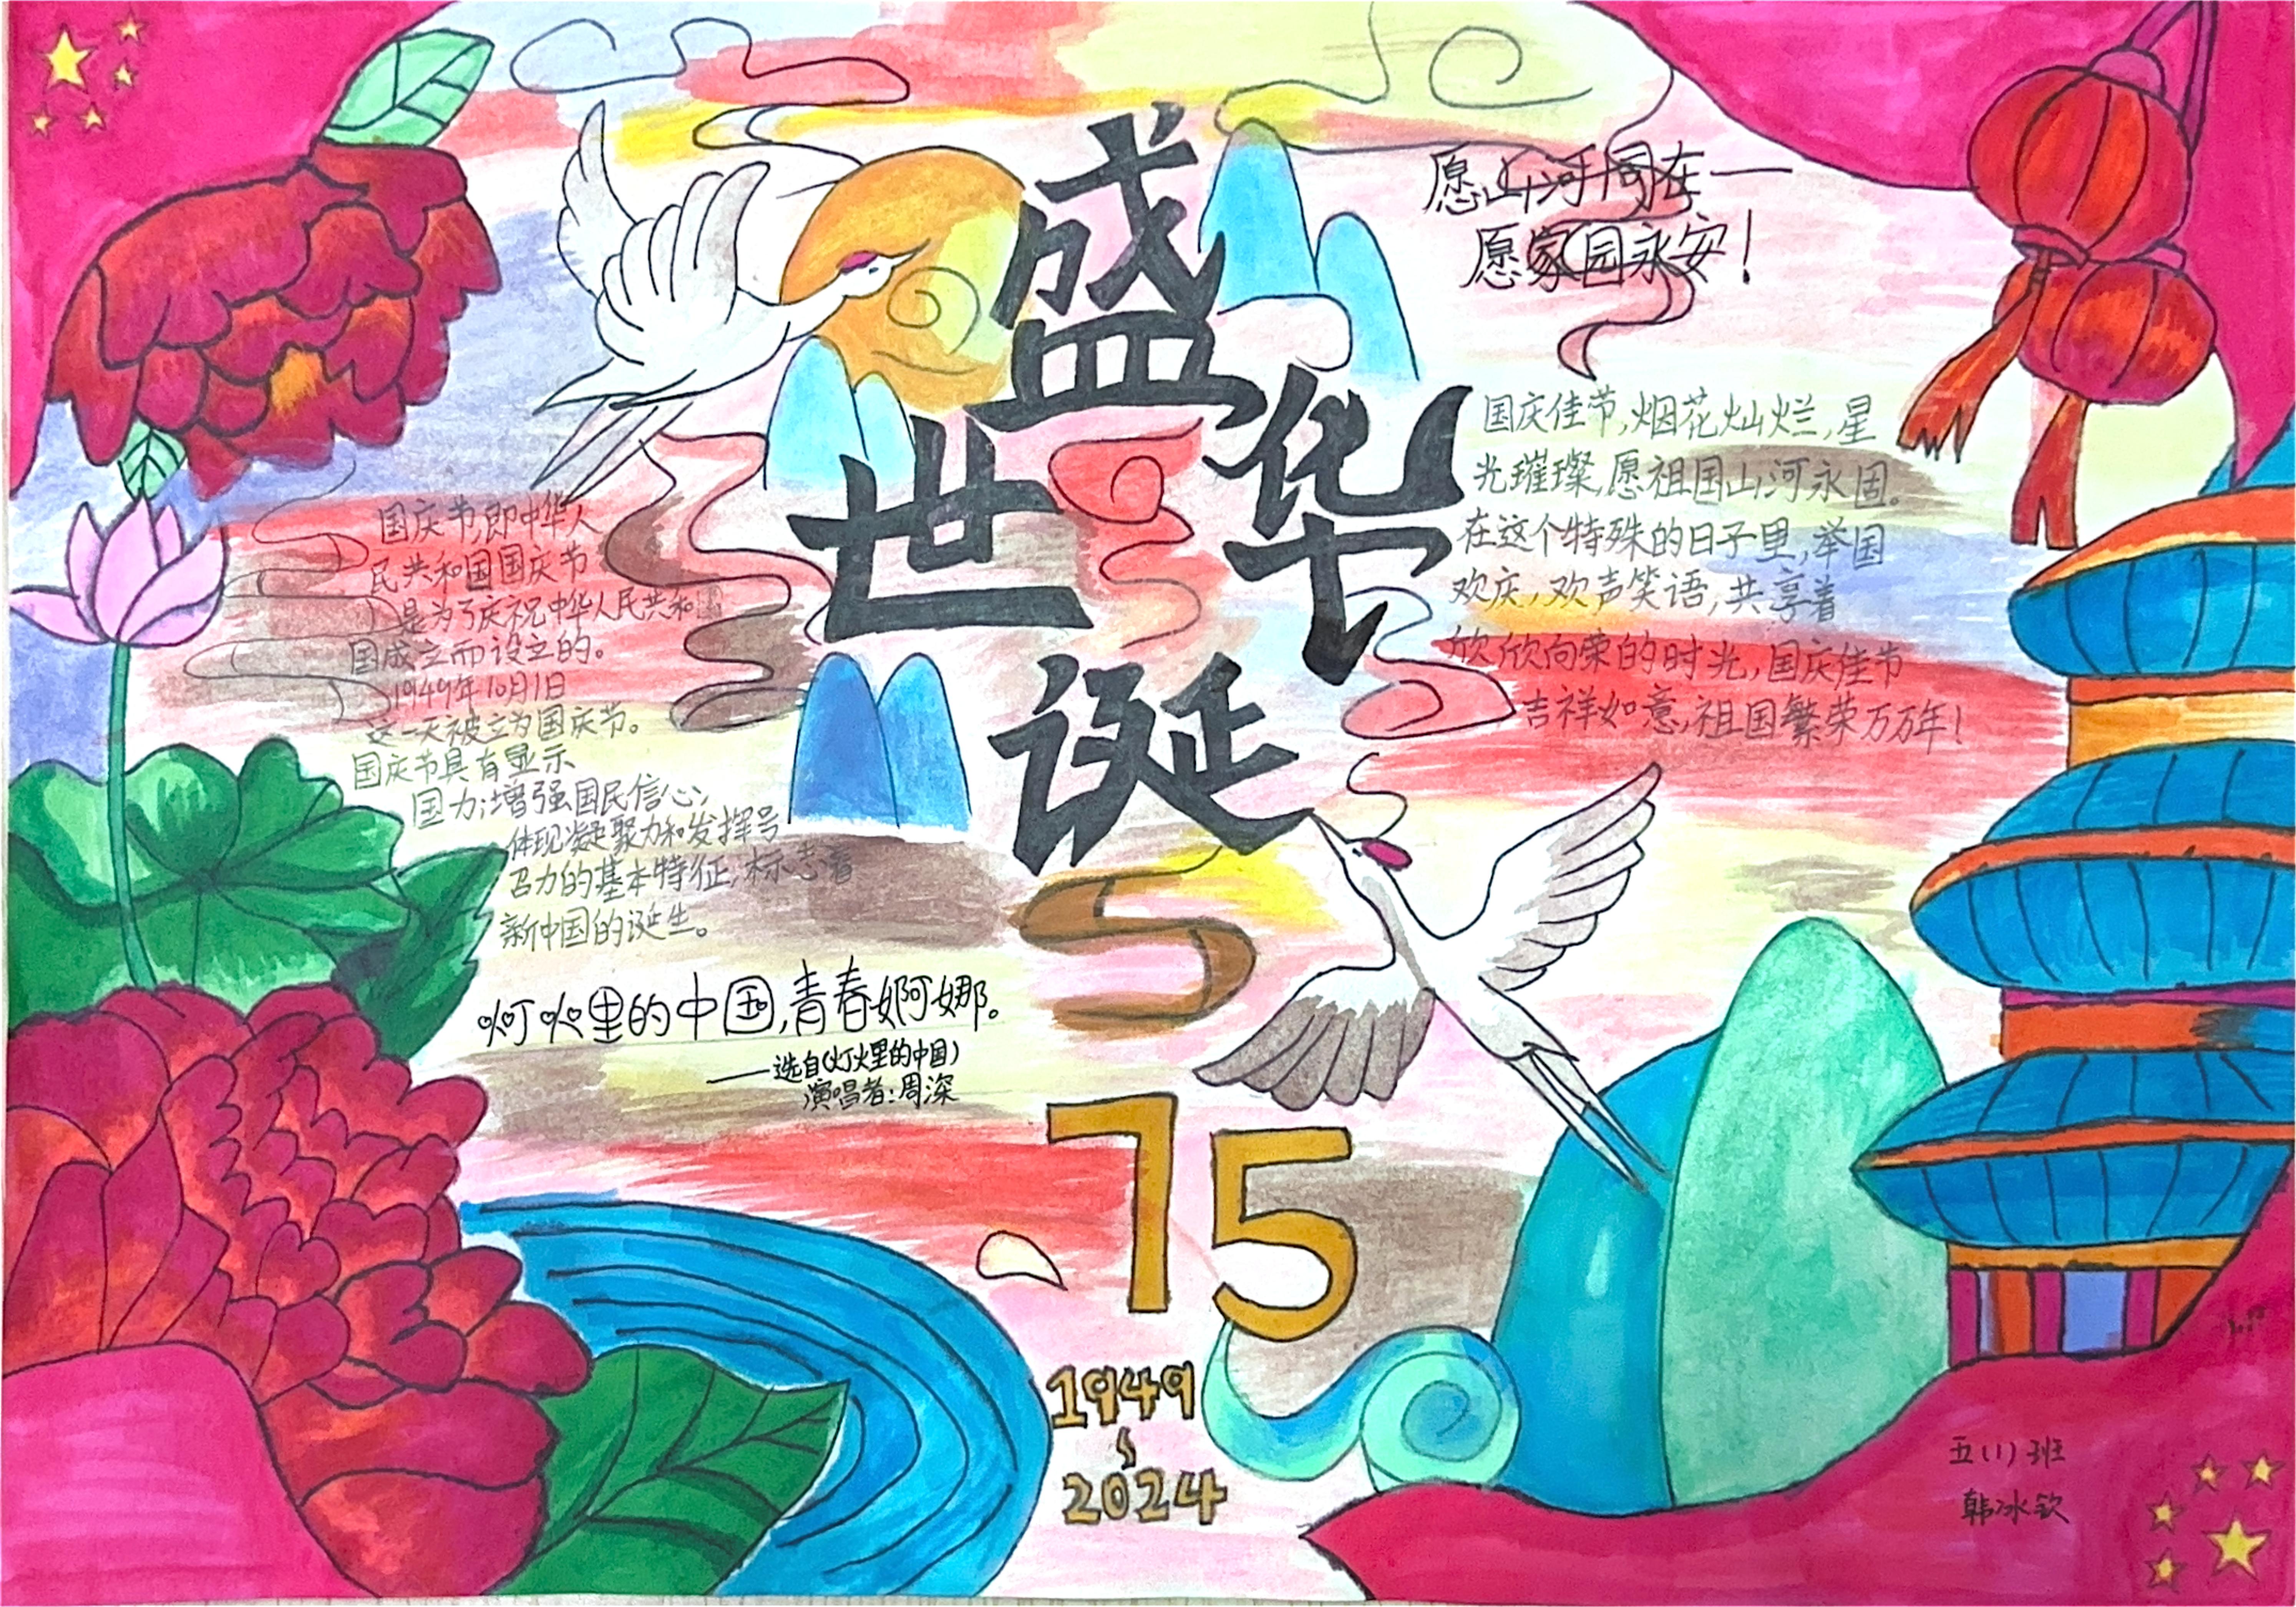 盛世华诞
愿山河同在一
愿家园永安！
国庆节，即中华人
民共和国国庆节
是为了庆祝中华人民共和国
国成立而设立的。
1949年10月1日
这一天被立为国庆节。
国庆节具有显示
国力；增强国民信心；
体现凝聚力和发挥号
召力的基本特征；标志着
新中国的诞生。
灯火里的中国，青春婀娜。
——选自《灯火里的中国》
演唱者：周深
国庆佳节，烟花灿烂，星
光璀璨，愿祖国山河永固。
在这个特殊的日子里，举国
欢庆，欢声笑语，共享着
欣欣向荣的时光，国庆佳节
吉祥如意，祖国繁荣万万年！
75
1949
~
2024
五（1）班
韩冰钦